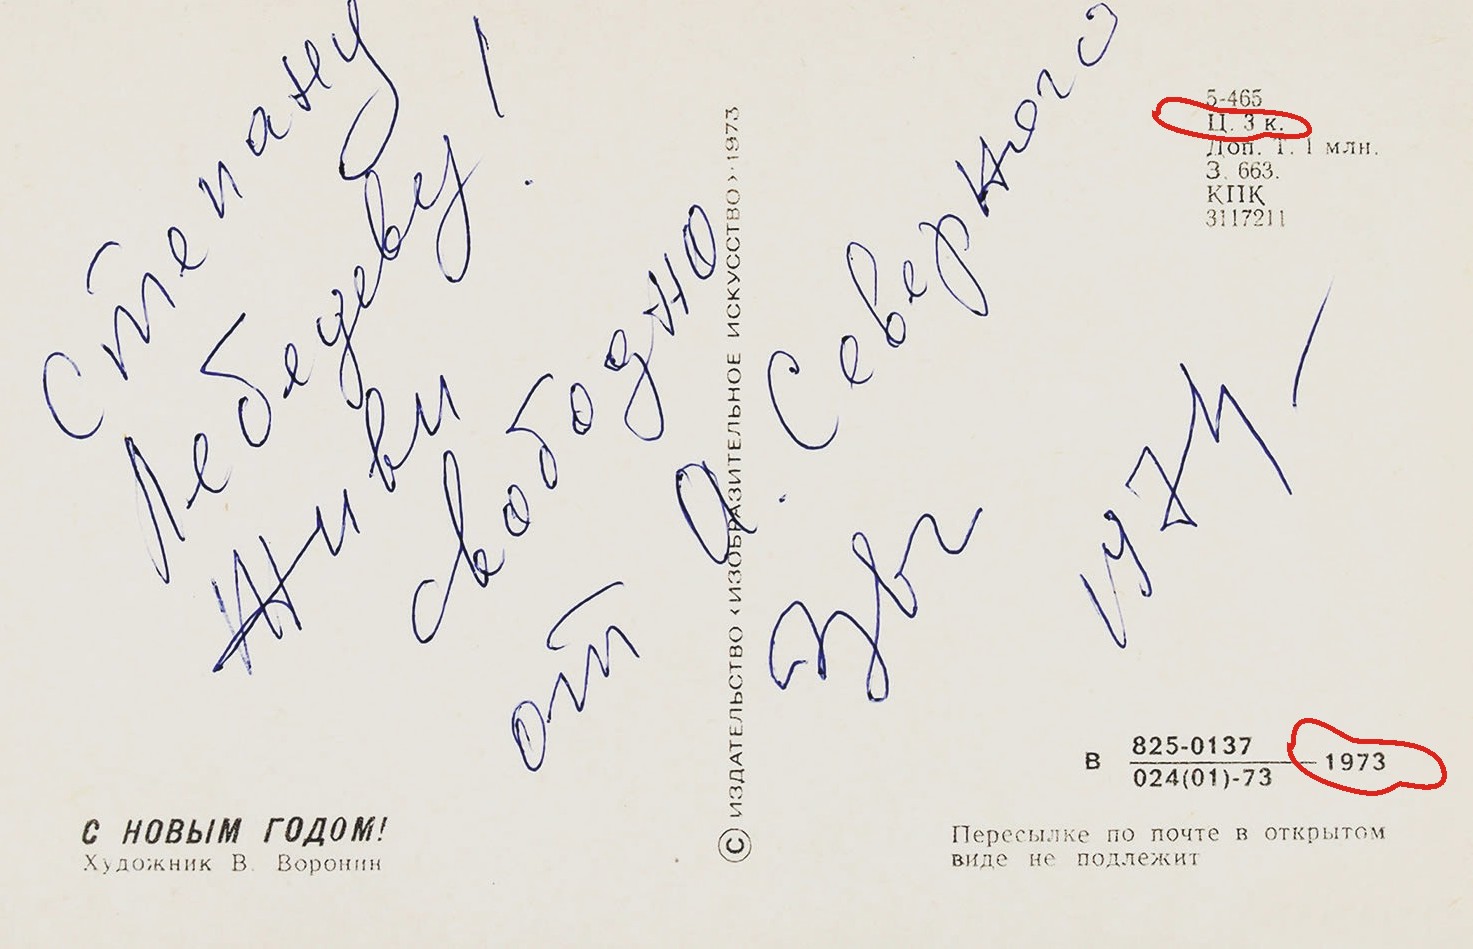 Степану
Лебедеву!
Живи
свободно
от А. Северного
1974
5-465
Ц. 3 к.
Доп. Т. 1 млн.
З. 663.
КПК
3117211
© ИЗДАТЕЛЬСТВО «ИЗОБРАЗИТЕЛЬНОЕ ИСКУССТВО» · 1973
В 825-0137
024(01)-73 — 1973
С НОВЫМ ГОДОМ!
Художник В. Воронин
Пересылке по почте в открытом
виде не подлежит